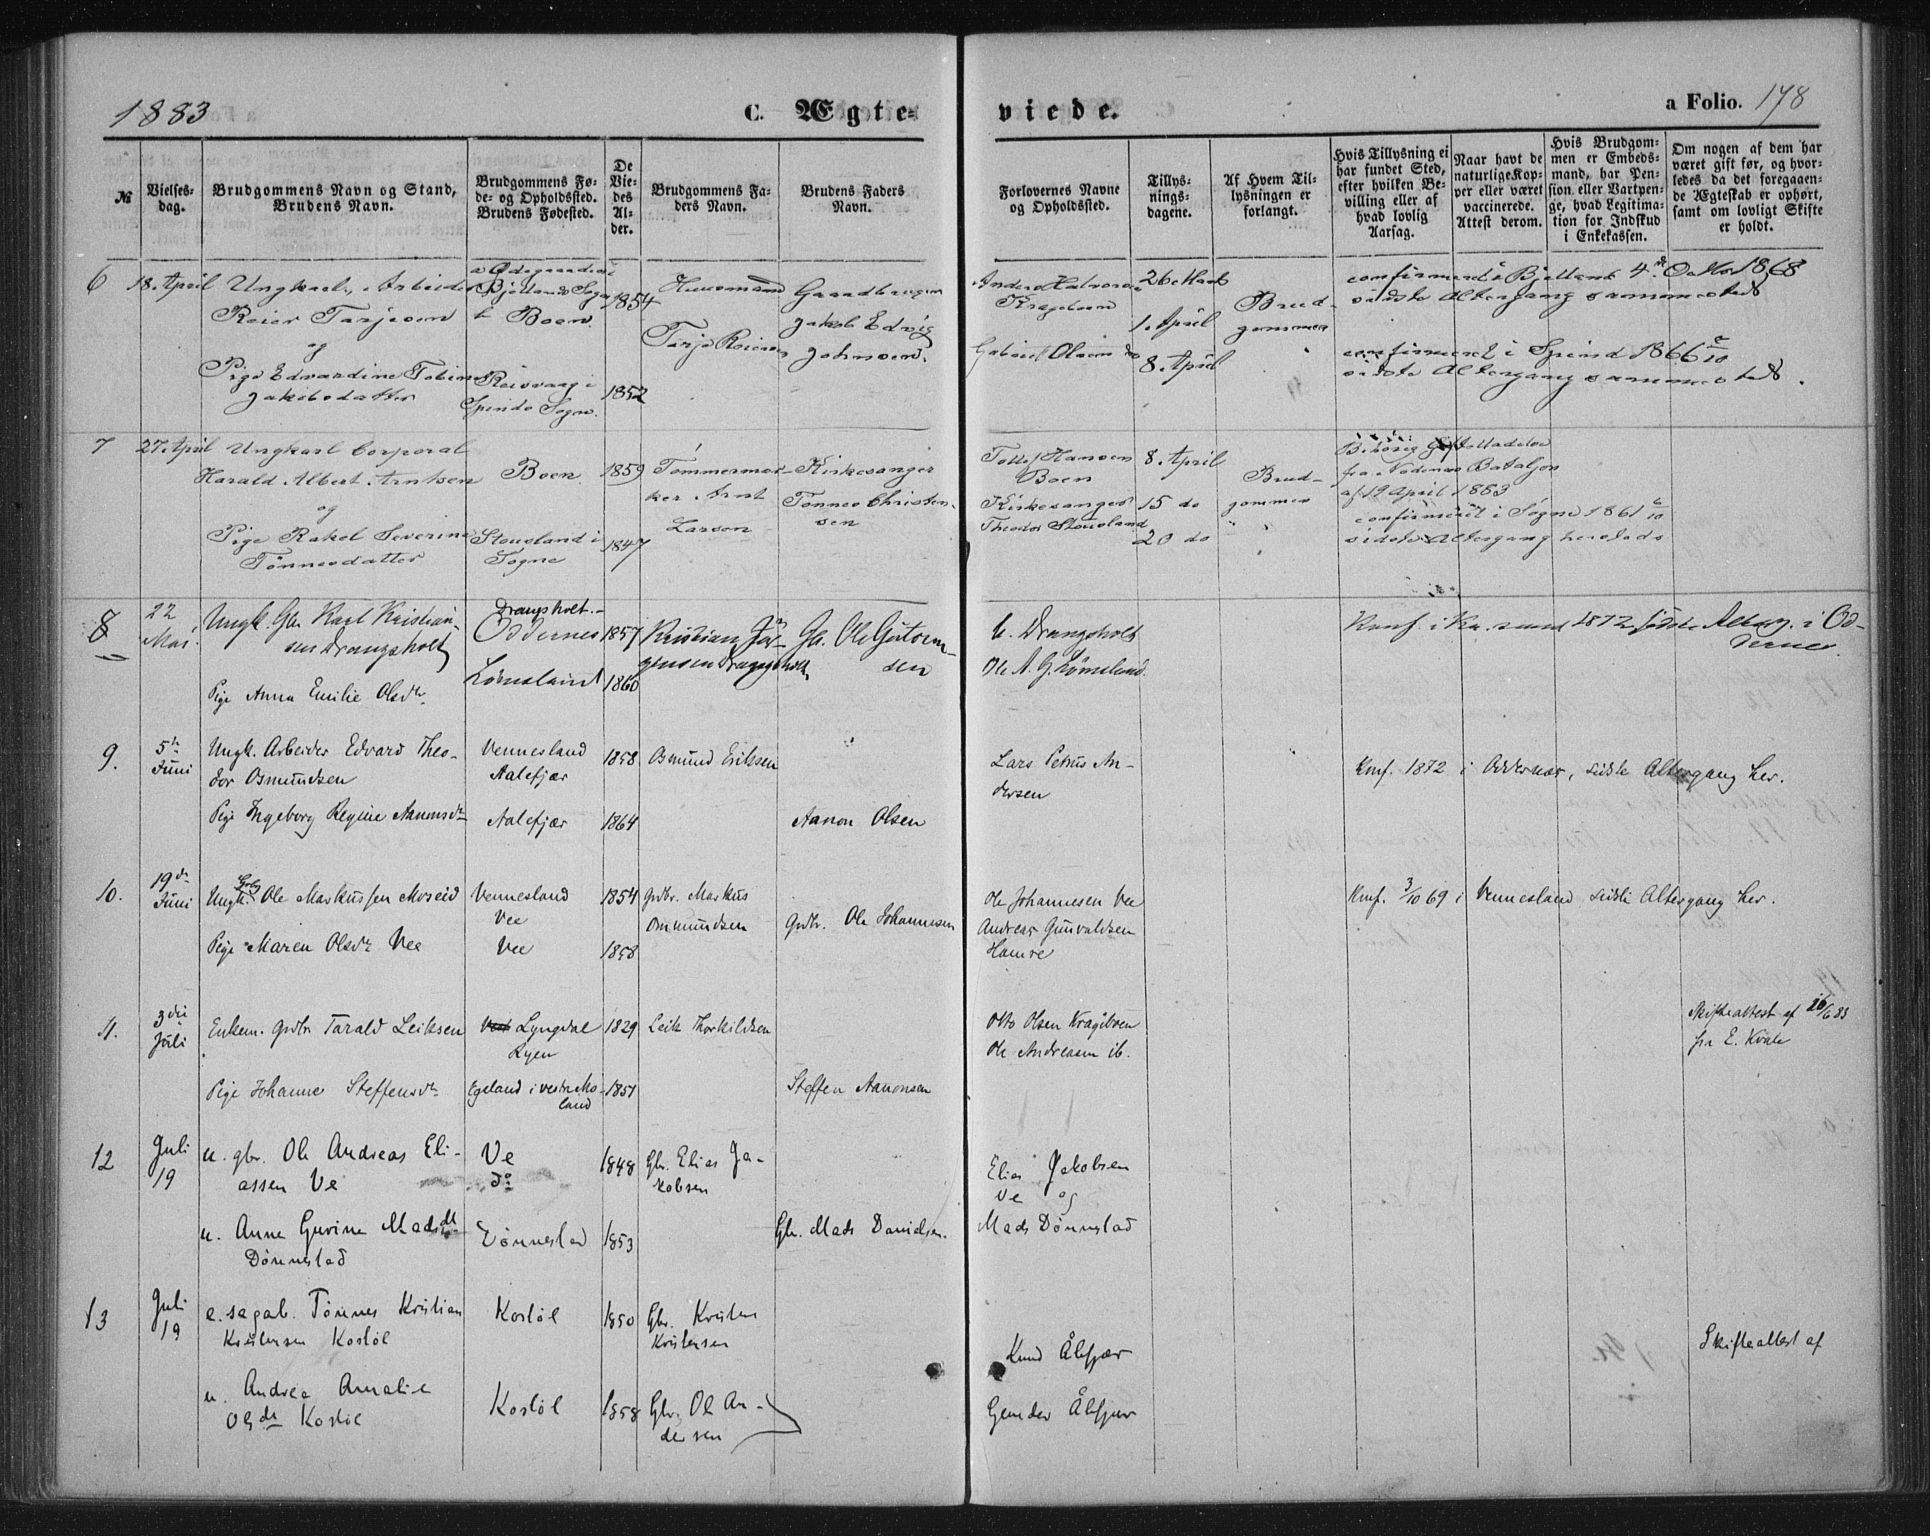 1883
C. Ægte-
viede.
a Folio. 178
№
Vielses-
dag.
Brudgommens Navn og Stand,
Brudens Navn.
Brudgommens Fø-
de- og Opholdssted.
Brudens Fødested.
De
Vie-
des
Al-
der.
Brudgommens Fa-
ders Navn.
Brudens Faders
Navn.
Forlovernes Navne
og Opholdssted.
Tillys-
nings-
dagene.
Af Hvem Til-
lysningen er
forlangt.
Hvis Tillysning ei
har fundet Sted,
efter hvilken Be-
villing eller af
hvad lovlig
Aarsag.
Naar havt de
naturlige Kop-
per eller været
vaccinerede.
Attest derom.
Hvis Brudgom-
men er Embeds-
mand, har Pen-
sion eller Vartpen-
ge, hvad Legitima-
tion for Indskud
i Enkekassen.
Om nogen af dem har
været gift før, og hvor-
ledes da det foregaaen-
de Ægteskab er ophørt,
samt om lovligt Skifte
er holdt.
6
18. April
Ungkarl, Arbeider
Reier Tarjesen
og
Pige Edvardine Tobine
Jakobsdatter
Bjellands Sogn
Boen
1854
Spinds Sogn.
1852
Huusmand
Tarje Reiersen
Gaardbruger
Jakob Edvig
Johnsen.
Anders Halvorsen
Krageboen
Gabriel Olsen do
26. Marts
1. April
8. April
Brud-
gommen
confirmeret i Bjelland 4de Octbr 1868
sidste Altergang sammesteds
confirmeret i Spind 1866
sidste Altergang sammesteds.
7
27. April
Ungkarl Corporal
Harald Albert Arntsen
og
Pige Rakel Severine
Tønnesdatter
Boen
1859
Stousland i
Sogne
1847
Tømmermær-
ker Arnt
Larsen
Kirkesanger
Tønnes Christen-
sen
Tollef Hansen
Boen
Kirkesanger
Theodor Stousland
8. April
15 do
20 do
Brud-
gommen
fra Nedenes Bataljon
af 19 April 1883
confirmeret i Søgne 1861 6/10
sidste Altergang hersteds
8
22
Mai.
Ungk. Gbr. Karl Kristian-
sen Drangsholt
Pige Anna Emilie Olsdtr.
Drangsholt.
Oddernes
1857
1860
Kristian Jør-
gensen Drangsholt,
Gb. Ole Gutorm-
sen
Drangsholt
Konf. i Kr. sand 1872 sidste Alterg. i Od-
dernes.
9.
5te
Juni
Ungk. Arbeider Edvard Theo-
dor Osmundsen
Pige Ingeborg Regine Aanonsdtr
Vennesland
Aalefjær
1858
Aalefjær
1864
Osmund Eriksen
Aanon Olsen
Lars Petrus An-
dersen
Konf. 1872 i Oddernæs, sidste Altergang her.
10.
19de
Juni
Ungk. Ole Markussen Moseid
Pige Maren Olsdtr Vee
Vennesland
Vee
1854
Vee
1858
Grdbr. Markus
Osmundsen
Grdbr. Ole Johannesen
Ole Johannesen Vee
Andreas Gunvaldsen
Hamre
Konf. 3/10 69 i Vennesland sidste Altergang her.
11.
3die
Juli
Enkem. Grdbr Tarald Leiksen
Pige Johanne Steffensdtr
Lyngdal
Ryen
1829
Egeland i vestre Mo-
land
1851
Leik Thorkildsen
Steffen Aanonsen
Otto Olsen Krageboen
Ole Andreasen ib.
Skifteattest af 26/6 83
fra E. Kvale
12
Juli
19
u. gbr. Ole Andreas Eli-
assen Ve
u. Anne Gurine Madsdt
Dønnestad
Ve
do
1848
Dønnestad
1853
Gbr. Elias Ja-
kobsen
Gbr. Mads Danielsen.
Elias Jakobsen
Ve og
Mads Dønnestad
13
Juli
19
e. sagab. Tønnes Kristian
Kristensen Kostøl
u. Andrea Amalie
Olsdr Kostøl
Kostøl
1850
Kostøl
1858
Gbr. Kristen
Kristensen
Gbr. Ole An-
dersen
Knud Ålefjær
Gunder Ålefjær
Skifteattest af